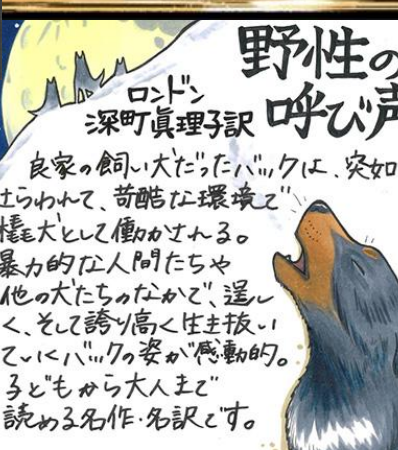 野性の
呼び声
ロンドン
深町眞理子訳
良家の飼い犬だったバックは、突如
さらわれて、苛酷な環境で
橇犬として働かされる。
暴力的な人間たちや
他の犬たちのなかで、逞し
く、そして誇り高く生き抜い
ていくバックの姿が感動的。
子どもから大人まで
読める名作・名訳です。